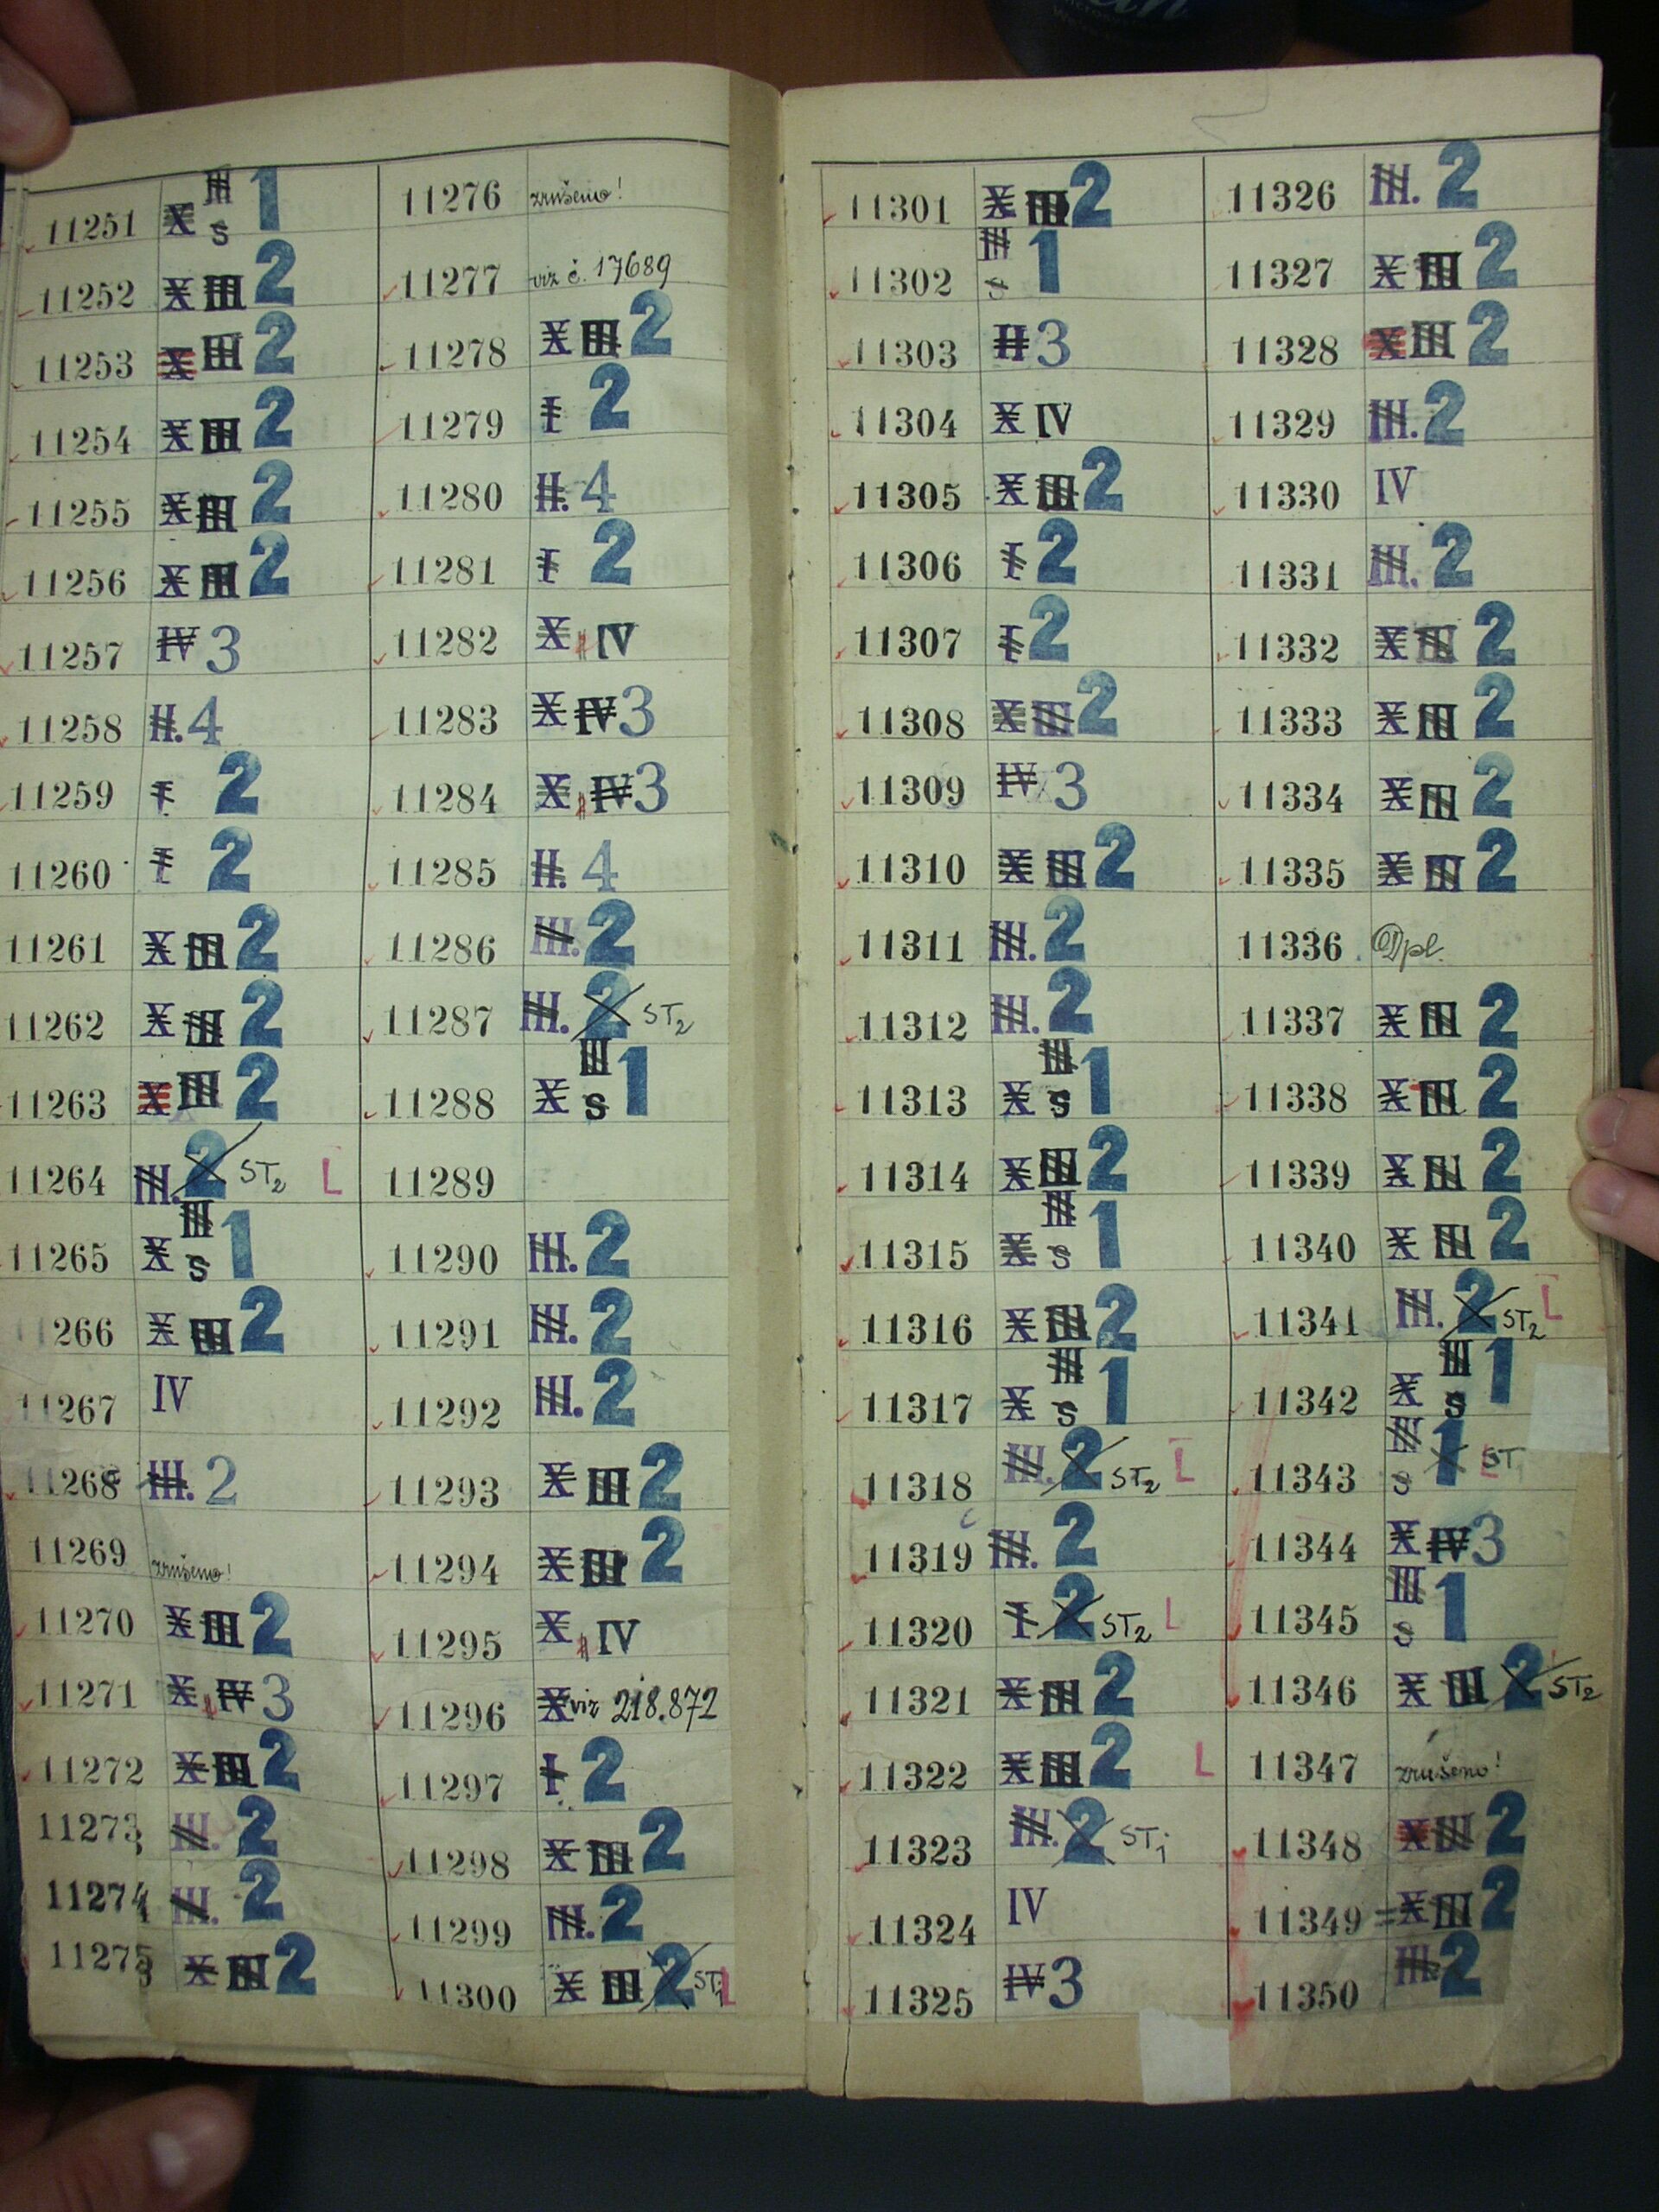 11251 X III s 1
11252 X III 2
11253 X III 2
11254 X III 2
11255 X III 2
11256 X III 2
11257 IV 3
11258 II. 4
11259 I 2
11260 I 2
11261 X III 2
11262 X III 2
11263 X III 2
11264 III. 2 ST2 L
11265 X III s 1
11266 X III 2
11267 IV
11268 III. 2
11269 zrušeno!
11270 X III 2
11271 X IV 3
11272 X III 2
11273 III. 2
11274 III. 2
11275 X III 2
11276 zrušeno!
11277 viz č. 17689
11278 X III 2
11279 I 2
11280 II. 4
11281 I 2
11282 X IV
11283 X IV 3
11284 X IV 3
11285 II. 4
11286 III. 2
11287 III. 2 ST2
11288 X III s 1
11289
11290 III. 2
11291 III. 2
11292 III. 2
11293 X III 2
11294 X III 2
11295 X IV
11296 X viz 218.872
11297 I 2
11298 X III 2
11299 III. 2
11300 X III 2 L
11301 X III 2
11302 III s 1
11303 II 3
11304 X IV
11305 X III 2
11306 I 2
11307 I 2
11308 X III 2
11309 IV 3
11310 X III 2
11311 III. 2
11312 III. 2
11313 X III s 1
11314 X III 2
11315 X III s 1
11316 X III 2
11317 X III s 1
11318 III. 2 ST2 L
11319 III. 2
11320 I 2 ST2 L
11321 X III 2
11322 X III 2 L
11323 III. 2 ST1
11324 IV
11325 IV 3
11326 III. 2
11327 X III 2
11328 X III 2
11329 III. 2
11330 IV
11331 III. 2
11332 X III 2
11333 X III 2
11334 X III 2
11335 X III 2
11336 Dpl.
11337 X III 2
11338 X III 2
11339 X III 2
11340 X III 2
11341 III. 2 ST2 L
11342 X III s 1
11343 III s 1 ST L
11344 X IV 3
11345 III s 1
11346 X III 2 ST2
11347 zrušeno!
11348 X III 2
11349 X III 2
11350 III. 2